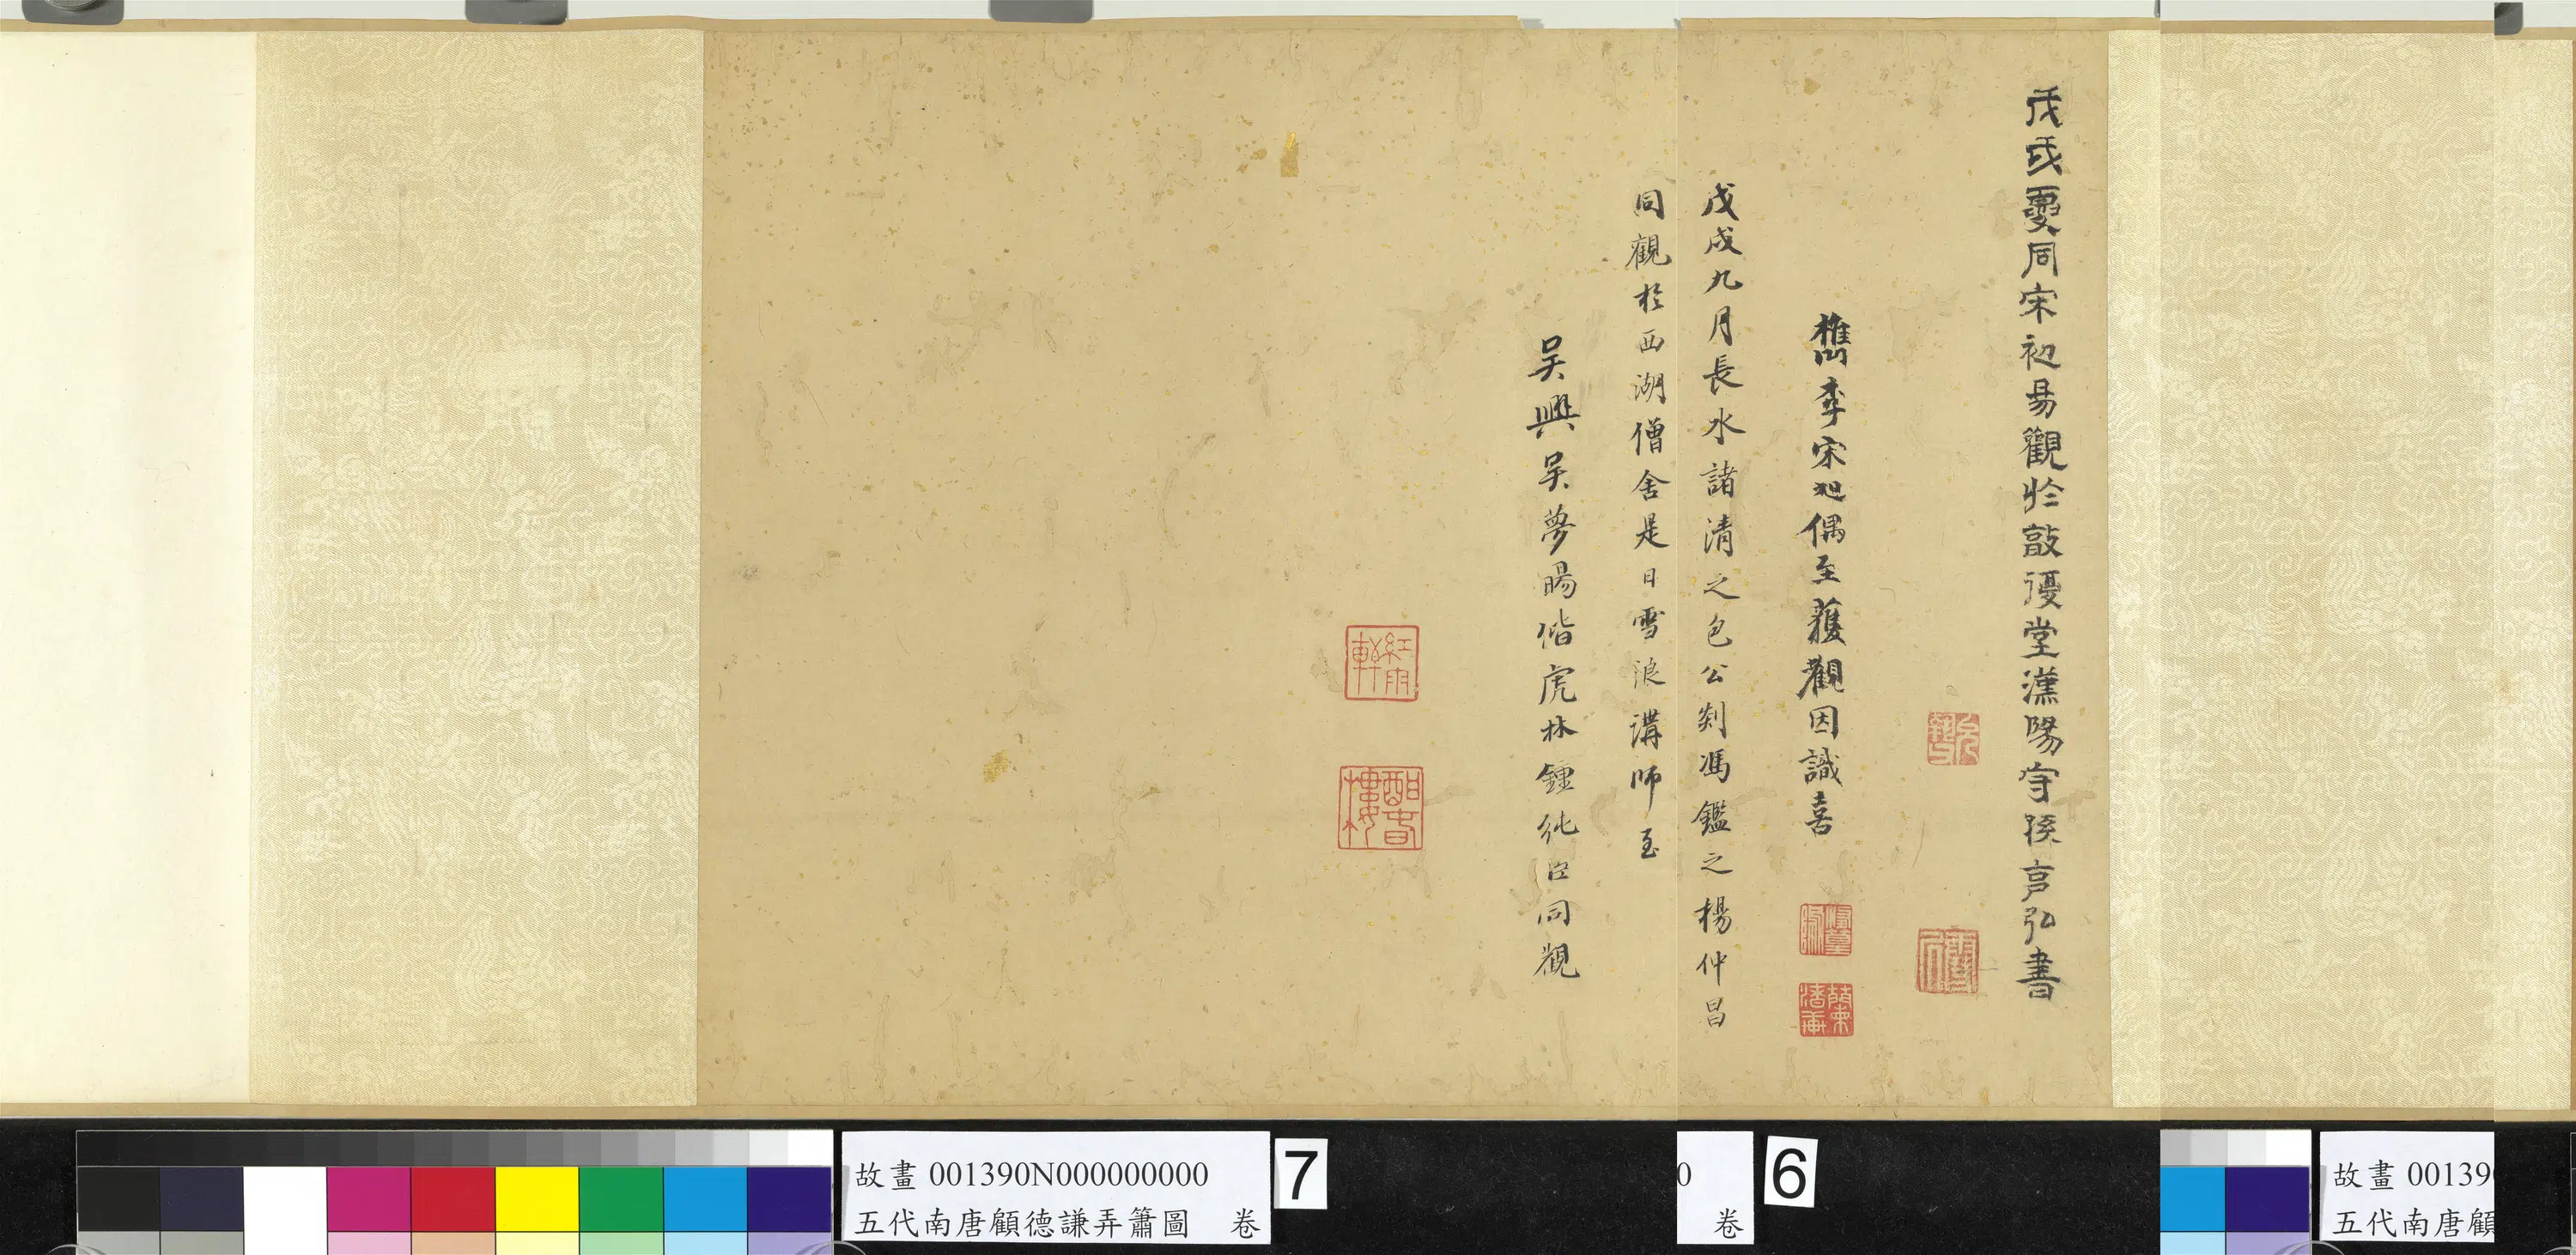 戊戌夏同宋初昜觀於敲𧫦堂漢陽守孫克弘書
檇李宋旭偶至獲觀因識喜
戊戌九月長水諸清之包公剡馮鑑之楊仲昌
同觀於西湖僧舍是日雪浪講師至
吳興吳夢暘偕虎林鍾純臣同觀
紅雨軒
酣古樓
故畫 001390N000000000
五代南唐顧德謙弄簫圖 卷
7
0
卷
6
故畫 00139
五代南唐顧